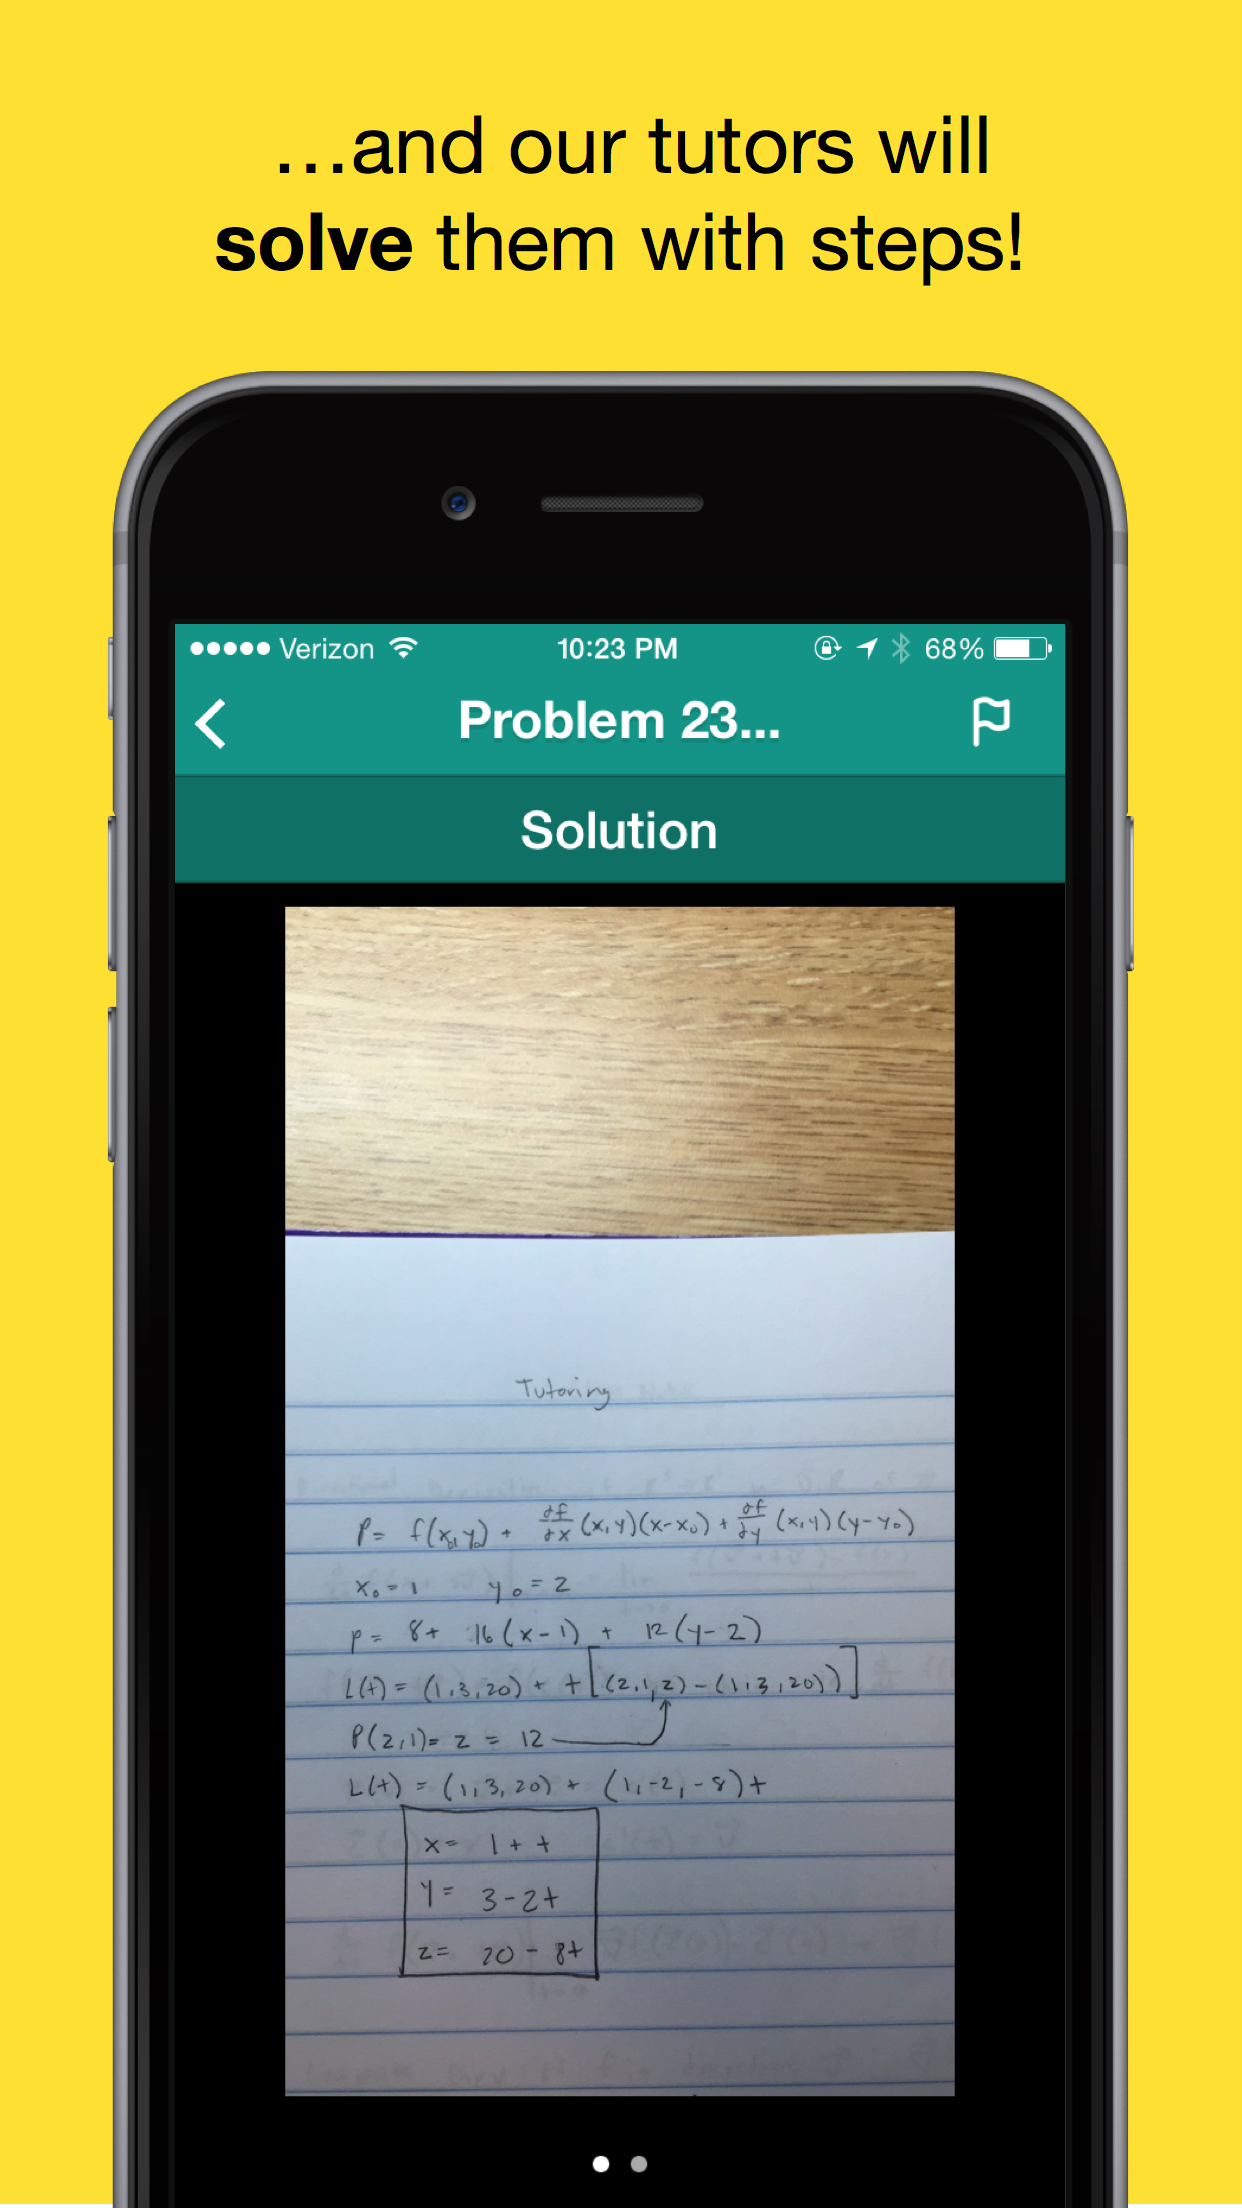 …and our tutors will
solve them with steps!
Verizon 10:23 PM 68%
Problem 23...
Solution
Tutoring
P = f(x₀, y₀) + ∂f/∂x (x, y)(x - x₀) + ∂f/∂y (x, y)(y - y₀)
x₀ = 1 y₀ = 2
P = 8 + 16(x - 1) + 12(y - 2)
L(t) = (1, 3, 20) + t[(2, 1, z) - (1, 3, 20))]
P(2, 1) = z = 12
L(t) = (1, 3, 20) + (1, -2, -8)t
x = 1 + t
y = 3 - 2t
z = 20 - 8t